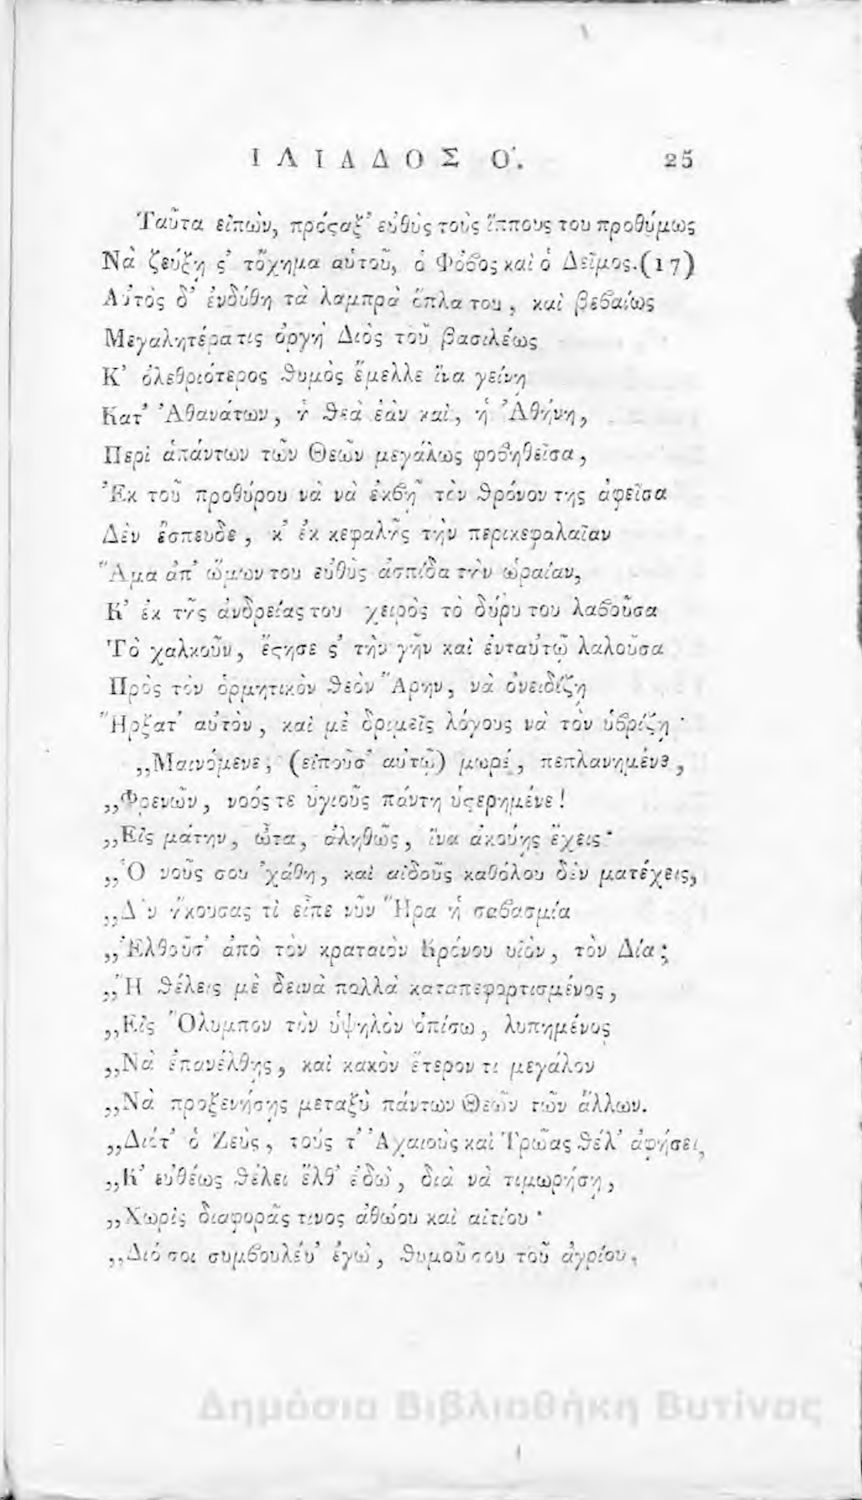 ΙΛΙΑΔΟΣ Ο΄. 25
Ταῦτα εἰπὼν, πρόςαξ' εὐθὺς τοὺς ἵππους του προθύμως
Νὰ ζεύξῃ ς' τὄχημα αὑτοῦ, ὁ Φόβος καὶ ὁ Δεῖμος.(17)
Αὐτὸς δ' ἐνδύθη τὰ λαμπρὰ ὅπλα του, καὶ βεβαίως
Μεγαλητέρα τις ὀργὴ Διὸς τοῦ βασιλέως
Κ' ὀλεθριότερος θυμὸς ἔμελλε ἵνα γείνῃ
Κατ' Ἀθανάτων, ἡ θεὰ ἐὰν καὶ, ἡ Ἀθήνη,
Περὶ ἁπάντων τῶν Θεῶν μεγάλως φοβηθεῖσα,
Ἐκ τοῦ προθύρου νὰ νὰ ἐκβῇ τὸν θρόνον της ἀφεῖσα
Δὲν ἔσπευδε, κ' ἐκ κεφαλῆς τὴν περικεφαλαῖαν
Ἅμα ἀπ' ὤμων του εὐθὺς ἀσπίδα τὴν ὡραίαν,
Κ' ἐκ τῆς ἀνδρείας του χειρὸς τὸ δόρυ του λαβοῦσα
Τὸ χαλκοῦν, ἔςησε ς' τὴν γῆν καὶ ἐνταὐτῷ λαλοῦσα
Πρὸς τὸν ὁρμητικὸν θεὸν Ἄρην, νὰ ὀνειδίζῃ
Ἤρξατ' αὐτὸν, καὶ μὲ δριμεῖς λόγους νὰ τὸν ὑβρίζῃ·
„Μαινόμενε, (εἰποῦσ' αὐτῷ) μωρὲ, πεπλανημένε,
„Φρενῶν, νοός τε ὑγιοῦς πάντη ὑςερημένε!
„Εἰς μάτην, ὦτα, ἀληθῶς, ἵνα ἀκούῃς ἔχεις·
„Ὁ νοῦς σου 'χάθη, καὶ αἰδοῦς καθόλου δὲν ματέχεις,
„Δὲν ἤκουσας τὶ εἶπε νῦν Ἥρα ἡ σεβασμία
„Ἐλθοῦσ' ἀπὸ τὸν κραταιὸν Κρόνου υἱὸν, τὸν Δία;
„Ἢ θέλεις μὲ δεινὰ πολλὰ καταπεφορτισμένος,
„Εἰς Ὄλυμπον τὸν ὑψηλὸν ὀπίσω, λυπημένος
„Νὰ ἐπανέλθῃς, καὶ κακὸν ἕτερον τι μεγάλον
„Νὰ προξενήσῃς μεταξὺ πάντων Θεῶν τῶν ἄλλων.
„Διότ' ὁ Ζεὺς, τοὺς τ' Ἀχαιοὺς καὶ Τρῶας θέλ' ἀφήσει,
„Κ' εὐθέως θέλει ἔλθ' ἐδὼ, διὰ νὰ τιμωρήσῃ,
„Χωρὶς διαφορᾶς τινος ἀθώου καὶ αἰτίου·
„Διό σοι συμβουλεύ' ἐγὼ, θυμοῦ σου τοῦ ἀγρίου,
Δημόσια Βιβλιοθήκη Βυτίνας